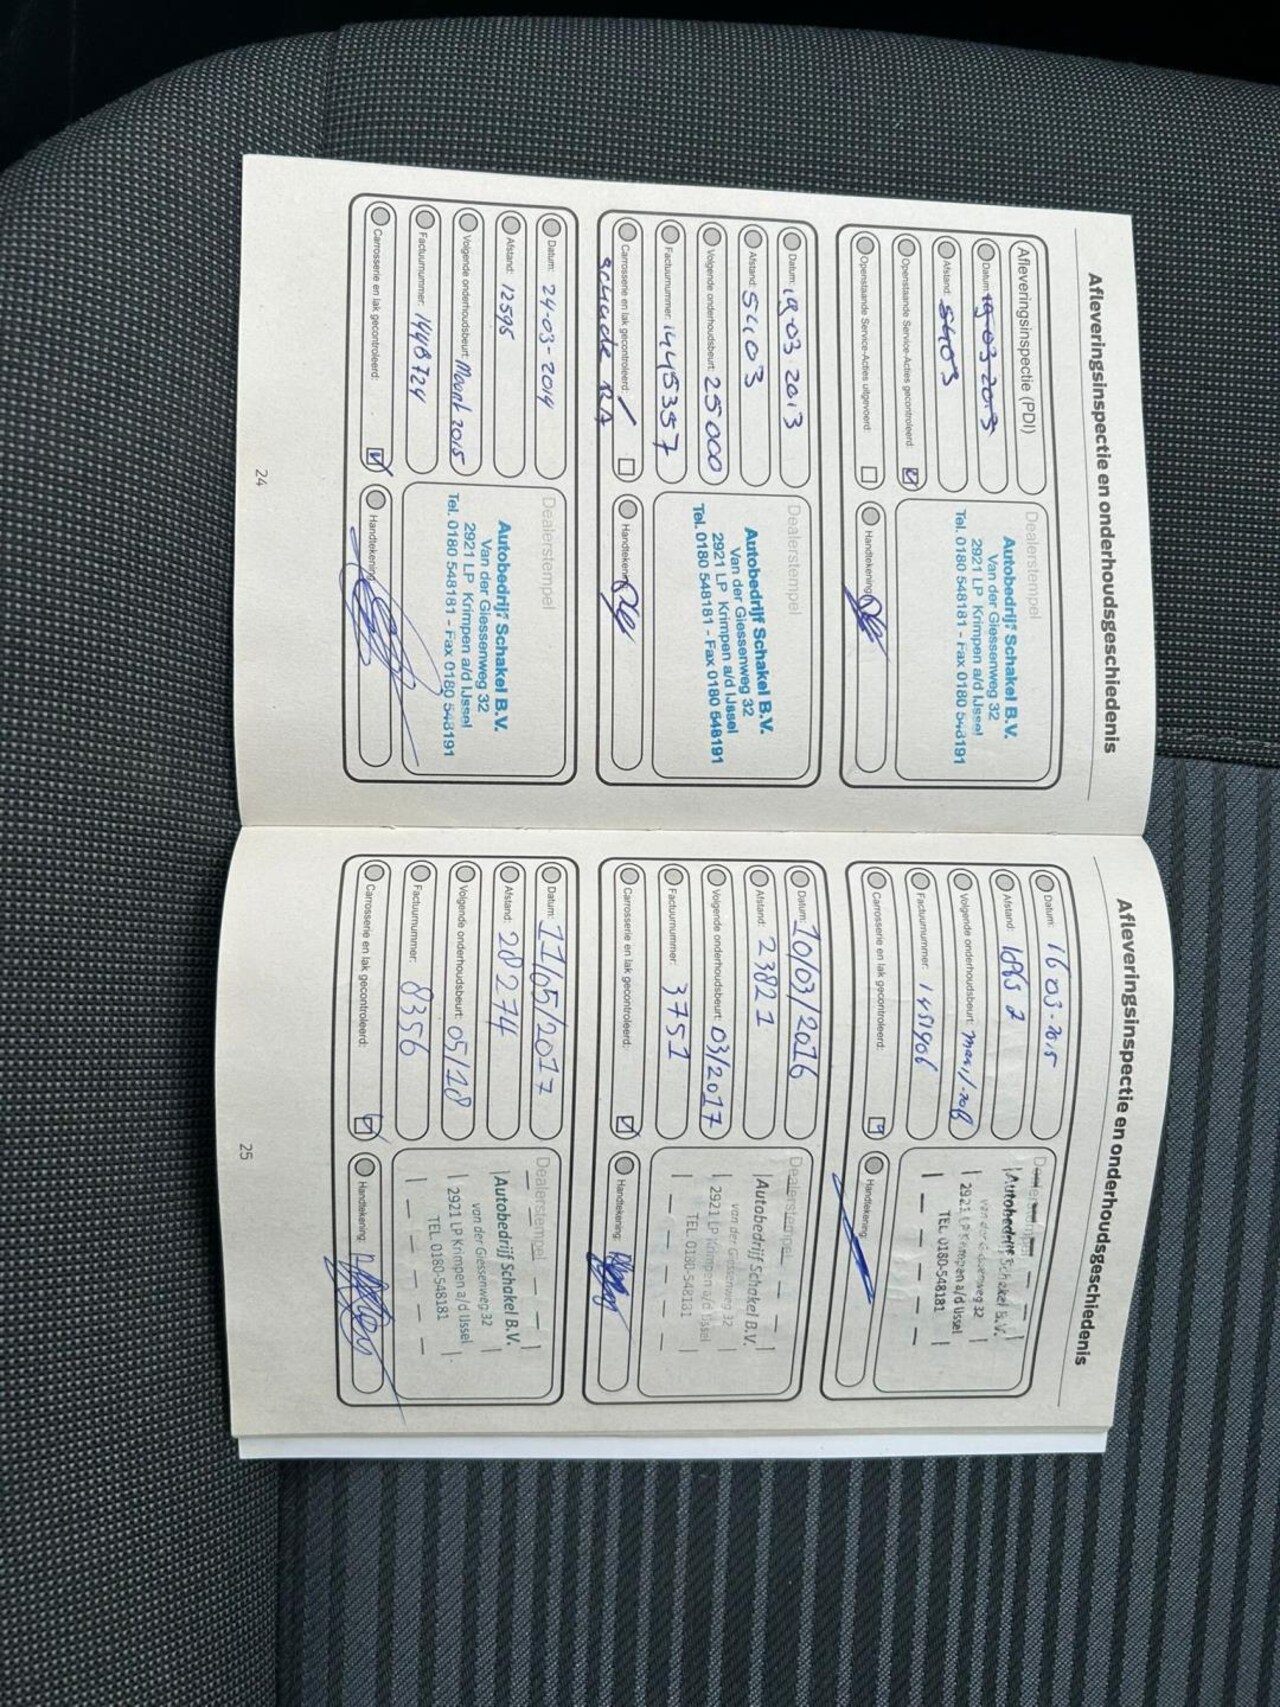 Afleveringsinspectie en onderhoudsgeschiedenis
Afleveringsinspectie (PDI)
Datum: 19-03-2013
Afstand: 5403
Openstaande Service-Acties gecontroleerd:
Openstaande Service-Acties uitgevoerd:
Dealerstempel
Autobedrijf Schakel B.V.
Van der Giessenweg 32
2921 LP Krimpen a/d IJssel
Tel. 0180 548181 - Fax 0180 548191
Handtekening
Datum: 19-03-2013
Afstand: 5403
Volgende onderhoudsbeurt: 25000
Factuurnummer: 1445357
Carrosserie en lak gecontroleerd:
schade RA
Dealerstempel
Autobedrijf Schakel B.V.
Van der Giessenweg 32
2921 LP Krimpen a/d IJssel
Tel. 0180 548181 - Fax 0180 548191
Handtekening
Datum: 24-03-2014
Afstand: 12595
Volgende onderhoudsbeurt: Maart 2015
Factuurnummer: 1448724
Carrosserie en lak gecontroleerd:
Dealerstempel
Autobedrijf Schakel B.V.
Van der Giessenweg 32
2921 LP Krimpen a/d IJssel
Tel. 0180 548181 - Fax 0180 548191
Handtekening
24
Afleveringsinspectie en onderhoudsgeschiedenis
Datum: 16-03-2015
Afstand: 18652
Volgende onderhoudsbeurt:
Factuurnummer: 1451906
Carrosserie en lak gecontroleerd:
Dealerstempel
Autobedrijf Schakel B.V.
van der Giessenweg 32
2921 LP Krimpen a/d IJssel
TEL. 0180-548181
Handtekening:
Datum: 10/03/2016
Afstand: 23821
Volgende onderhoudsbeurt: 03/2017
Factuurnummer: 3751
Carrosserie en lak gecontroleerd:
Dealerstempel
Autobedrijf Schakel B.V.
van der Giessenweg 32
2921 LP Krimpen a/d IJssel
TEL. 0180-548181
Handtekening:
Datum: 11/05/2017
Afstand: 28274
Volgende onderhoudsbeurt: 05/18
Factuurnummer: 8356
Carrosserie en lak gecontroleerd:
Dealerstempel
Autobedrijf Schakel B.V.
van der Giessenweg 32
2921 LP Krimpen a/d IJssel
TEL. 0180-548181
Handtekening:
25